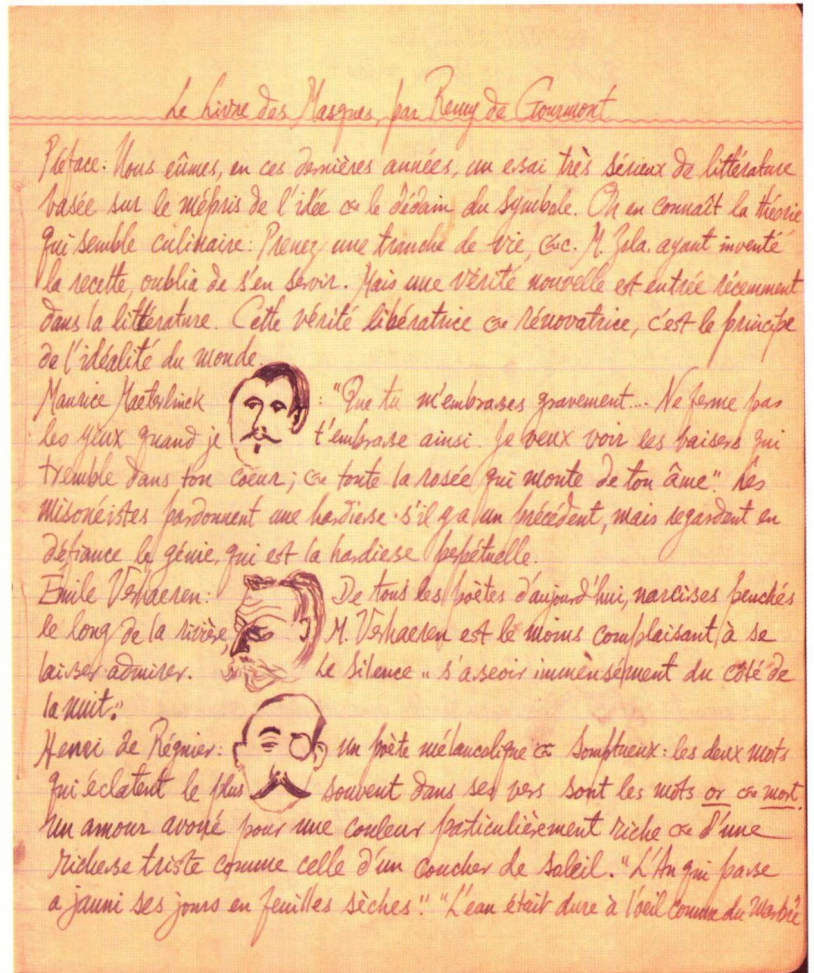 Le Livre des Masques, par Remy de Gourmont
Préface: Nous eûmes, en ces dernières années, un essai très sérieux de littérature
basée sur le mépris de l'idée & le dédain du symbole. On en connaît la théorie
qui semble culinaire: Prenez une tranche de vie, &c. M. Zola. ayant inventé
la recette, oublia de s'en servir. Mais une vérité nouvelle est entrée récemment
dans la littérature. Cette vérité libératrice & rénovatrice, c'est le principe
de l'idéalité du monde.
Maurice Maeterlinck : "Que tu m'embrasses gravement... Ne ferme pas
les yeux quand je t'embrasse ainsi. Je veux voir les baisers qui
tremble dans ton coeur; & toute la rosée qui monte de ton âme". Les
misonéistes pardonnent une hardiesse s'il y a un précédent, mais regardent en
défiance le génie, qui est la hardiesse perpétuelle.
Émile Verhaeren: De tous les poètes d'aujourd'hui, narcisses penchés
le long de la rivière, M. Verhaeren est le moins complaisant à se
laisser admirer. Le silence "s'asseoir immensément du côté de
la nuit."
Henri de Régnier: un poète mélancolique & somptueux: les deux mots
qui éclatent le plus souvent dans ses vers sont les mots or & mort.
Un amour avoué pour une couleur particulièrement riche & d'une
richesse triste comme celle d'un coucher de soleil. "L'An qui passe
a jauni ses jours en feuilles sèches". "L'eau était dure à l'oeil comme du Marbre